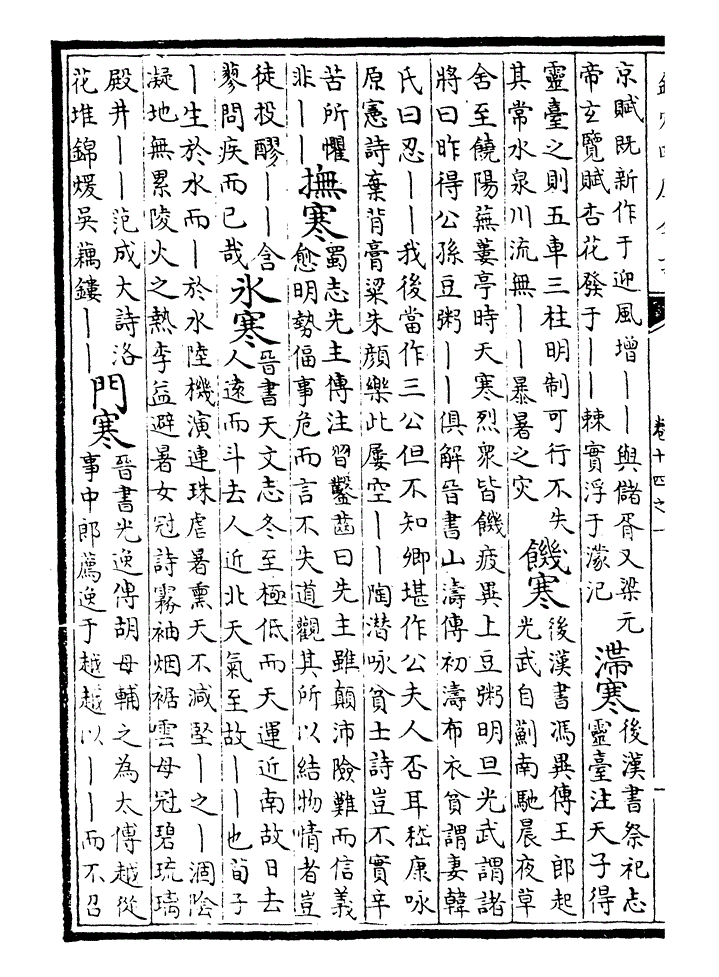 卷十四之一
京賦既新作于迎風增｜｜與儲胥又梁元
帝玄覽賦杏花發于｜｜棘實浮于濛汜
滯寒
後漢書祭祀志
靈臺注天子得
靈臺之則五車三柱明制可行不失
其常水泉川流無｜｜暴暑之灾
饑寒
後漢書馮異傳王郎起
光武自薊南馳晨夜草
舍至饒陽蕪蔞亭時天寒烈衆皆饑疲異上豆粥明旦光武謂諸
將曰昨得公孫豆粥｜｜俱解晉書山濤傳初濤布衣貧謂妻韓
氏曰忍｜｜我後當作三公但不知卿堪作公夫人否耳嵇康咏
原憲詩棄背膏粱朱顔樂此屢空｜｜陶潜咏貧士詩豈不實辛
苦所懼
非｜｜
撫寒
蜀志先主傳注習鑿齒曰先主雖顛沛險難而信義
愈明勢偪事危而言不失道觀其所以結物情者豈
徒投醪｜｜含
蓼問疾而已哉
氷寒
晉書天文志冬至極低而天運近南故日去
人遠而斗去人近北天氣至故｜｜也荀子
｜生於水而｜於水陸機演連珠虐暑熏天不減堅｜之｜涸陰
凝地無累陵火之熱李益避暑女冠詩霧袖烟裾雲母冠碧琉璃
殿井｜｜范成大詩洛
花堆錦煖吳藕鏤｜｜
門寒
晉書光逸傳胡母輔之為太傅越從
事中郎薦逸于越越以｜｜而不召